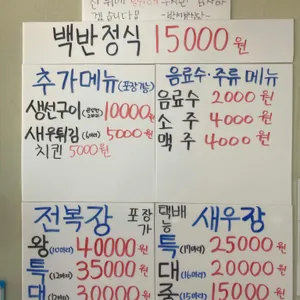 겠습니다
백반정식 15000원
추가메뉴 (포장가능)
생선구이 10000원
새우튀김 (6마리) 5000원
치킨 5000원
음료수·주류 메뉴
음료수 2000원
소주 4000원
맥주 4000원
전복장 포장가
왕 (10마리) 40000원
특 (12마리) 35000원
대 30000원
택배가능 새우장
특 (19마리) 25000원
대 (16마리) 20000원
중 (15마리) 15000원